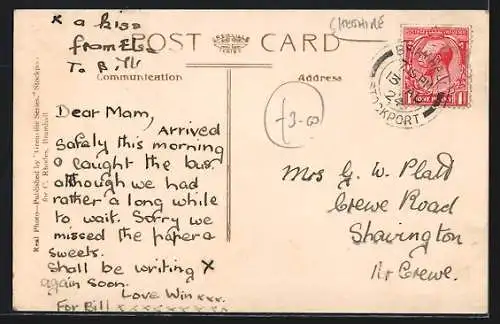 x a kiss
from Else
To Bill
CHESHIRE
POST CARD
Communication
Address
Dear Mam,
Arrived
safely this morning
& caught the bus.
although we had
rather a long while
to wait. Sorry we
missed the paper &
sweets.
Shall be writing x
again soon.
Love Win xxx.
For Bill xxxxxxxxx
Real Photo—Published by "Grenville Series," Stockport
for C. Rhodes, Bramhall
Mrs G. W. Platt
Crewe Road
Shavington
Nr Crewe.
STOCKPORT
ONE PENNY